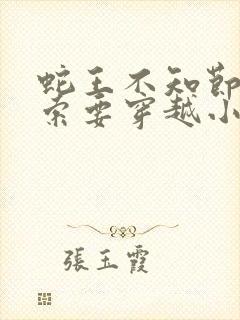 蛇王不知節
索要穿越小
張玉霞